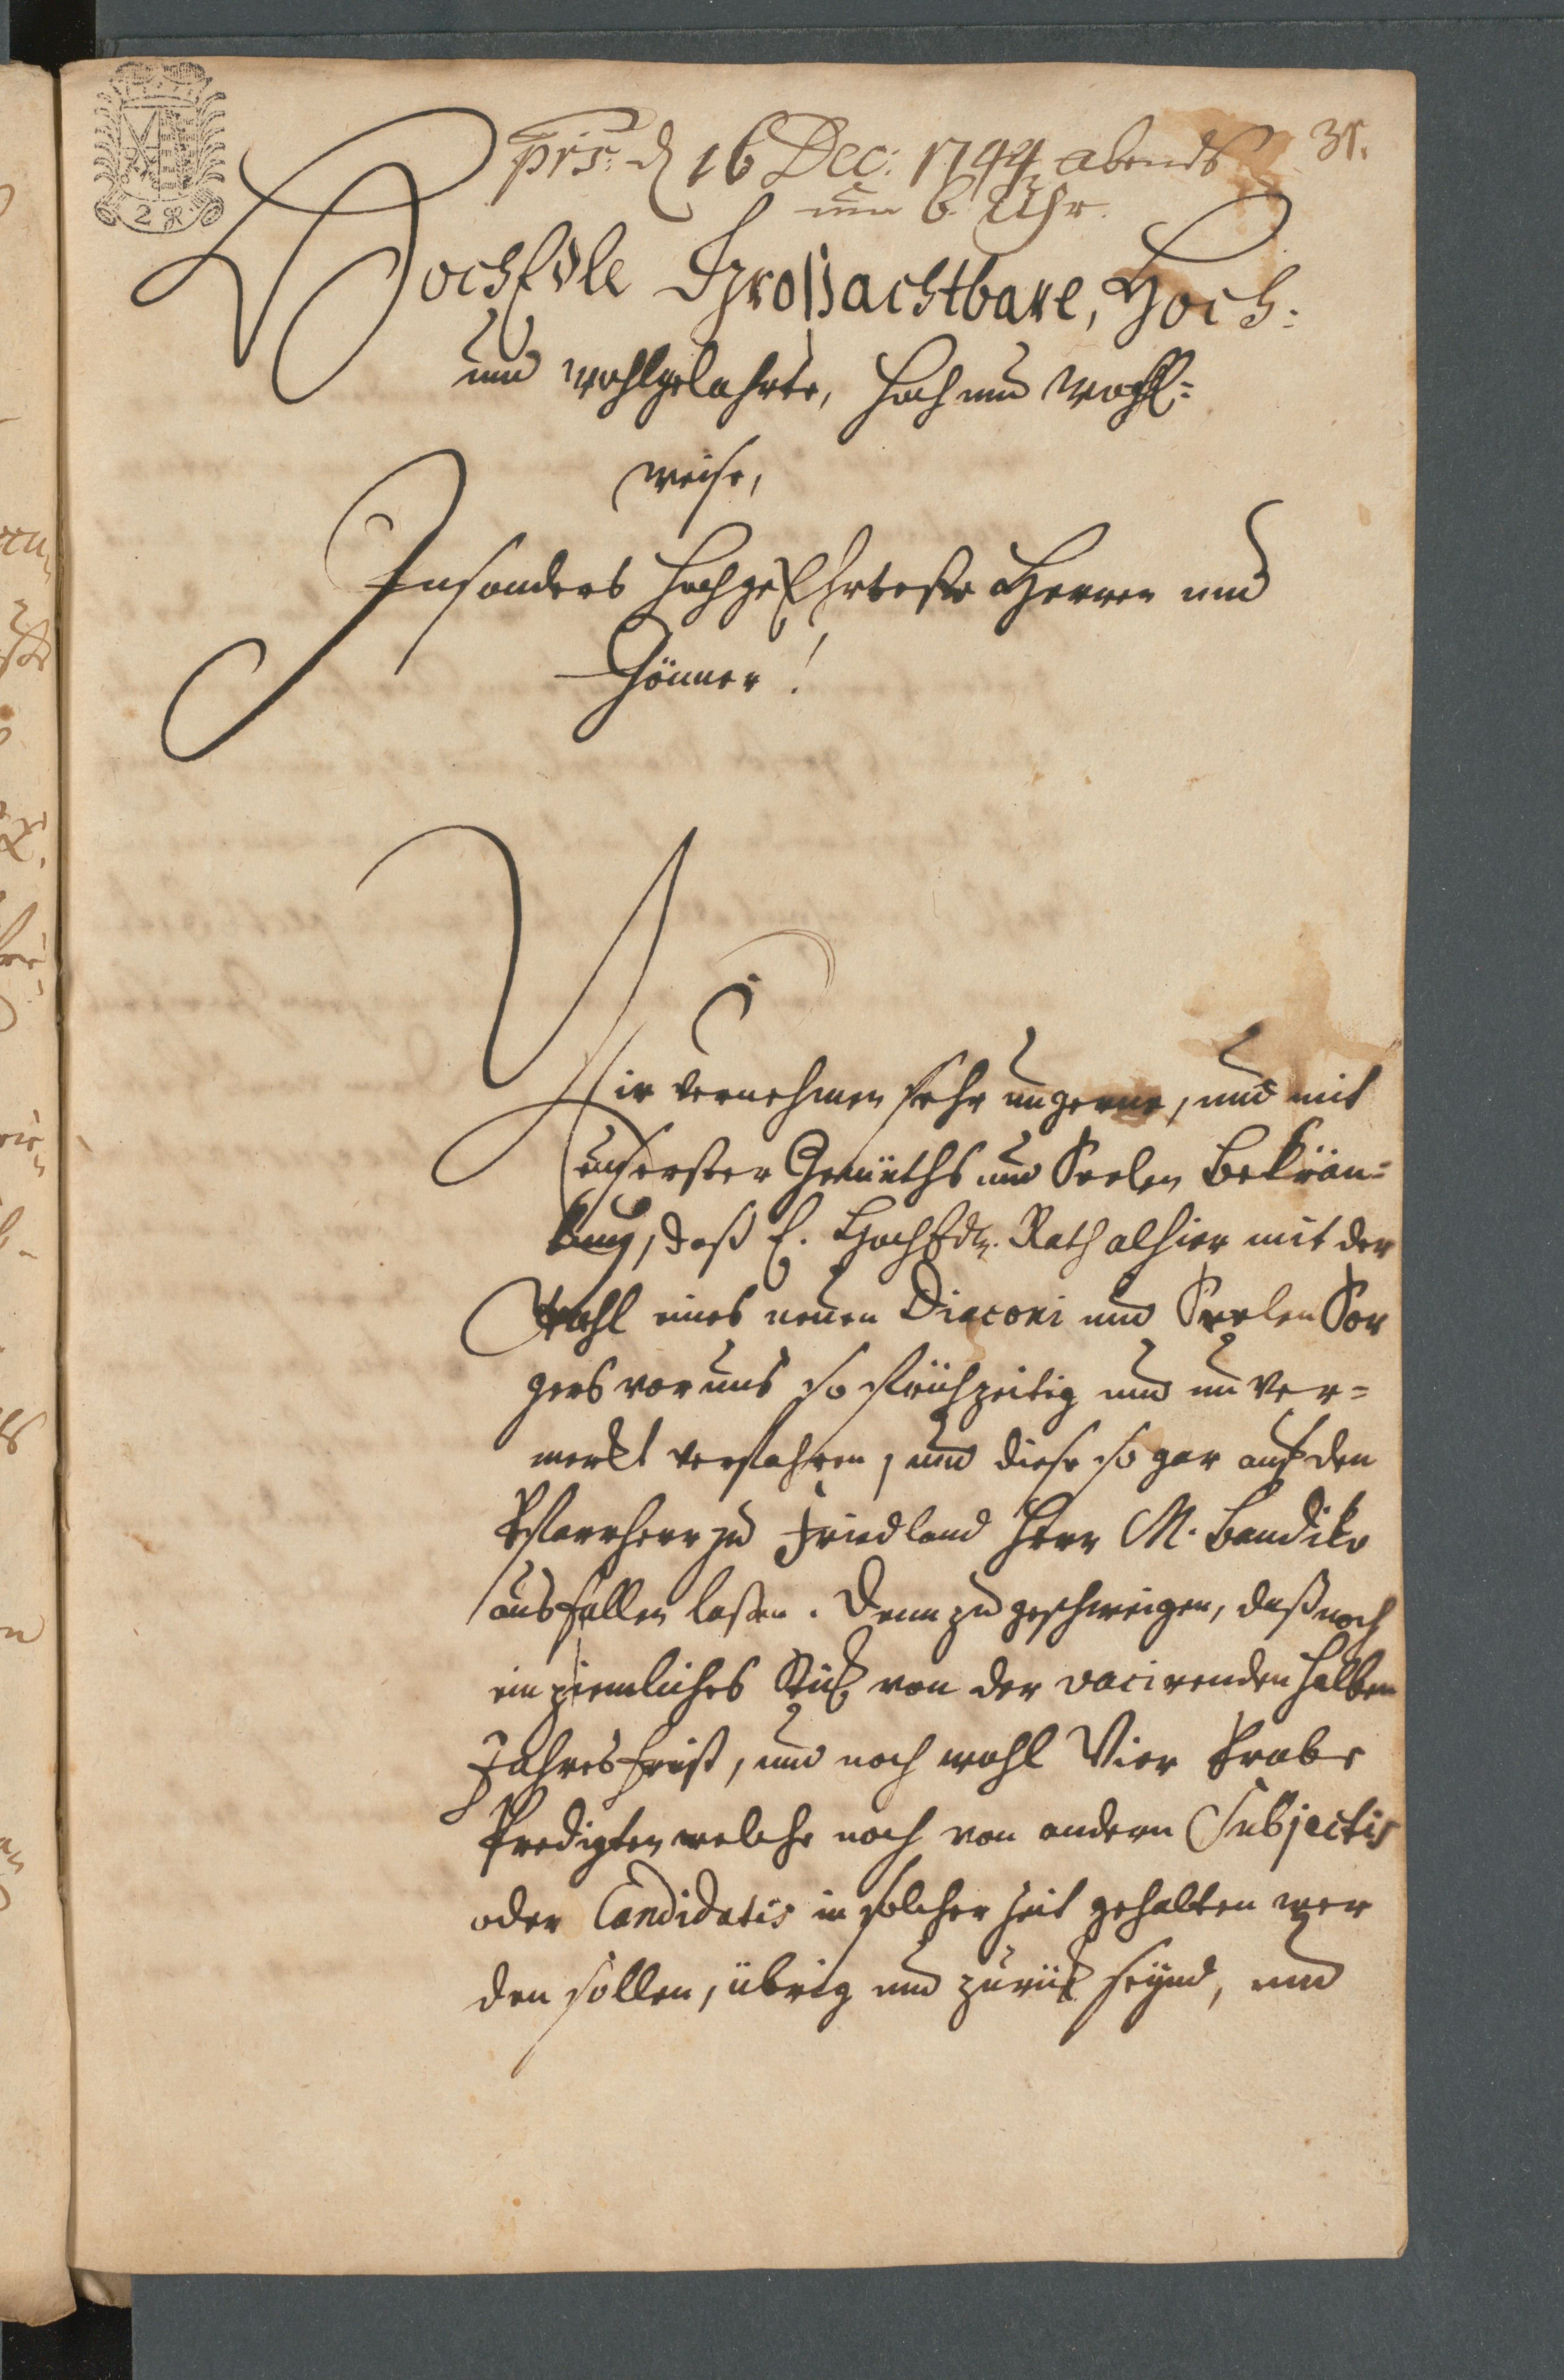 31.
prs: d 16 Dec: 1744 abends
um 6. Uhr.
HochEdle Großachtbare, Hoch-
und wohlgelahrte, Hoch und Wohl-
weise,
Insonders HochgeEhrteste Herren und
Gönner!
Wir vernehmen sehr ungerne, und mit
äuserster Gemüths und Seelen Bekrän-
kung, daß E. HochEdl. Rath alhier mit der
Wahl eines neuen Diaconi und Seelen Sor
gers vor uns so frühzeitig und unver-
merkt verfahren, und diese so gar auf den
Pfarrherr zu Friedland Herr M.
ausfallen laßen. Denn zu geschweigen, daß noch
ein ziemliches Stück von der vacirenden halben
Jahresfrist, und noch wohl Vier Probe
Predigten welche noch von andern Subjectis
oder Candidatis in solcher Zeit gehalten wer
den sollen, übrig und zurück seynd, und